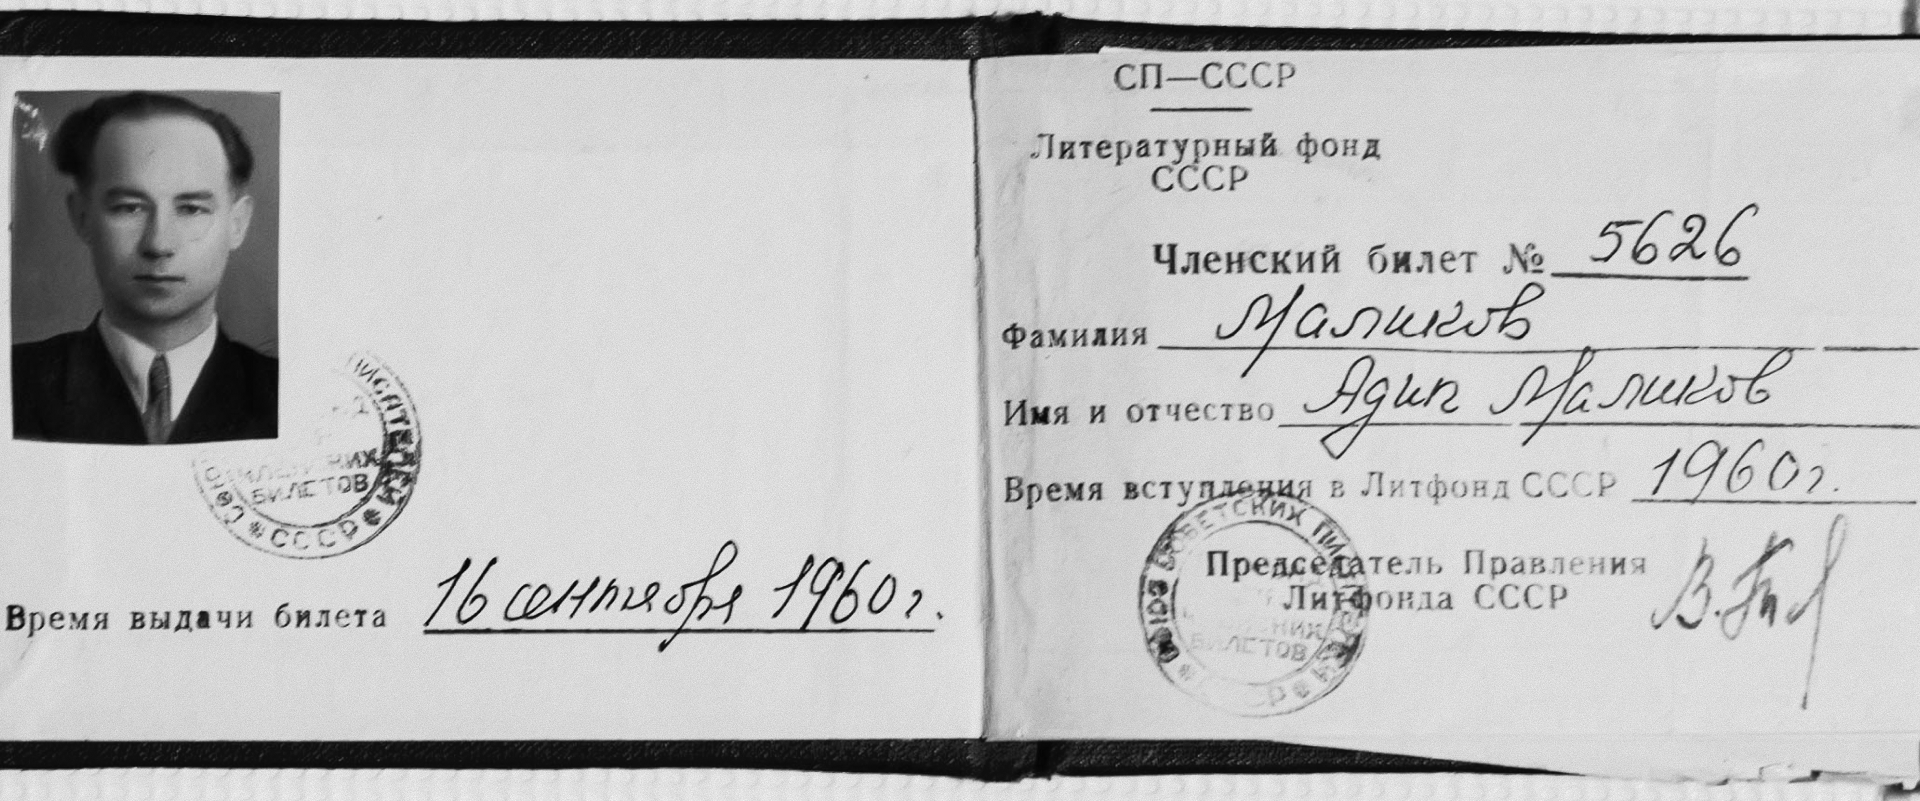 ПИСАТЕЛЕЙ
БИЛЕТОВ
СССР
Время выдачи билета 16 сентября 1960 г.
СП—СССР
Литературный фонд
СССР
Членский билет № 5626
Фамилия Маликов
Имя и отчество Адип Маликов
Время вступления в Литфонд СССР 1960 г.
СОЮЗ СОВЕТСКИХ ПИСАТЕЛЕЙ
БИЛЕТОВ
Председатель Правления
Литфонда СССР